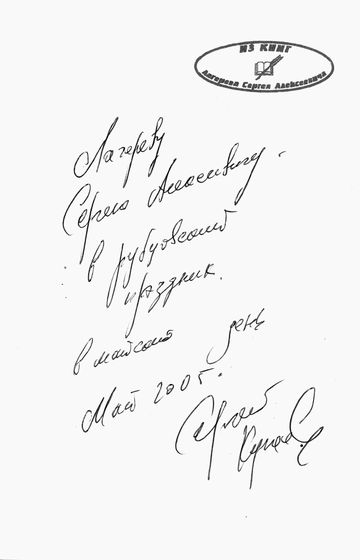 ИЗ КНИГ
Лагерева Сергея Алексеевича
Лагереву
Сергею Алексеевичу
в рубцовский
праздник.
в майский день
Май 2005г.
Сергей